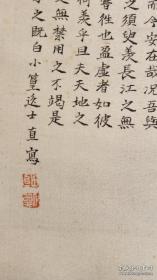 而今安在哉況吾與
之須臾羨長江之無
嘗徃也盈虛者如彼
何羨乎且夫天地之
之無禁用之不竭是
之既白小篁逸士直寫